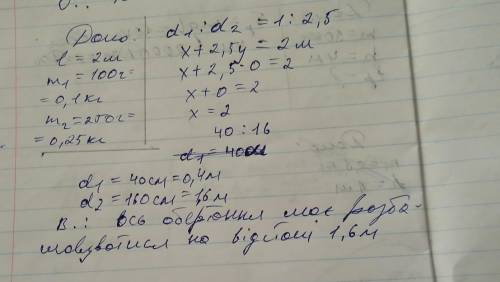 Дано:
l = 2м
m₁ = 100г =
= 0,1кг
m₂ = 250г =
= 0,25кг
d₁ : d₂ = 1 : 2,5
x + 2,5y = 2м
x + 2,5 · 0 = 2
x + 0 = 2
x = 2
40 : 16
d₁ = 40см
d₁ = 40см = 0,4м
d₂ = 160см = 16м
В.: Вісь обертання має розта-
шовуватися на відстані 1,6м